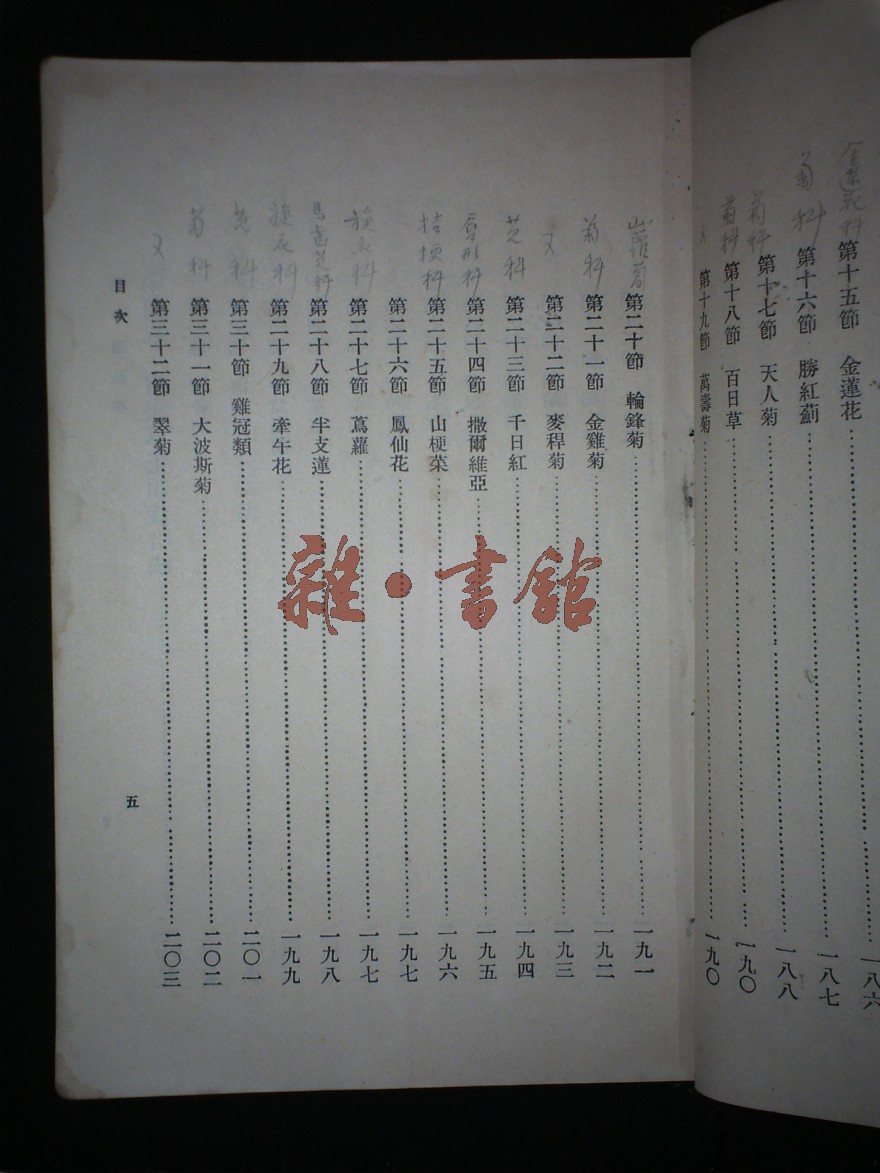 金蓮花科
第十五節 金蓮花 一八六
菊科
第十六節 勝紅薊 一八七
菊科
第十七節 天人菊 一八八
菊科
第十八節 百日草 一九〇
又
第十九節 萬壽菊 一九〇
山蘿蔔
第二十節 輪鋒菊 一九一
菊科
第二十一節 金雞菊 一九二
又
第二十二節 麥稈菊 一九三
莧科
第二十三節 千日紅 一九四
唇形科
第二十四節 撒爾維亞 一九五
桔梗科
第二十五節 山梗菜 一九六
第二十六節 鳳仙花 一九七
旋花科
第二十七節 蔦蘿 一九七
馬齒莧科
第二十八節 半支蓮 一九八
旋花科
第二十九節 牽牛花 一九九
莧科
第三十節 雞冠類 二〇一
菊科
第三十一節 大波斯菊 二〇二
又
第三十二節 翠菊 二〇三
目次
五
雜·書館